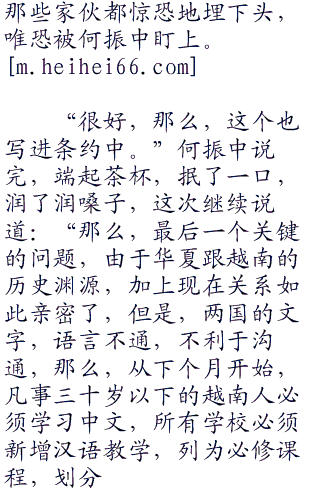 那些家伙都惊恐地埋下头，
唯恐被何振中盯上。
[m.heihei66.com]
“很好，那么，这个也
写进条约中。”何振中说
完，端起茶杯，抿了一口，
润了润嗓子，这次继续说
道：“那么，最后一个关键
的问题，由于华夏跟越南的
历史渊源，加上现在关系如
此亲密了，但是，两国的文
字，语言不通，不利于沟
通，那么，从下个月开始，
凡事三十岁以下的越南人必
须学习中文，所有学校必须
新增汉语教学，列为必修课
程，划分